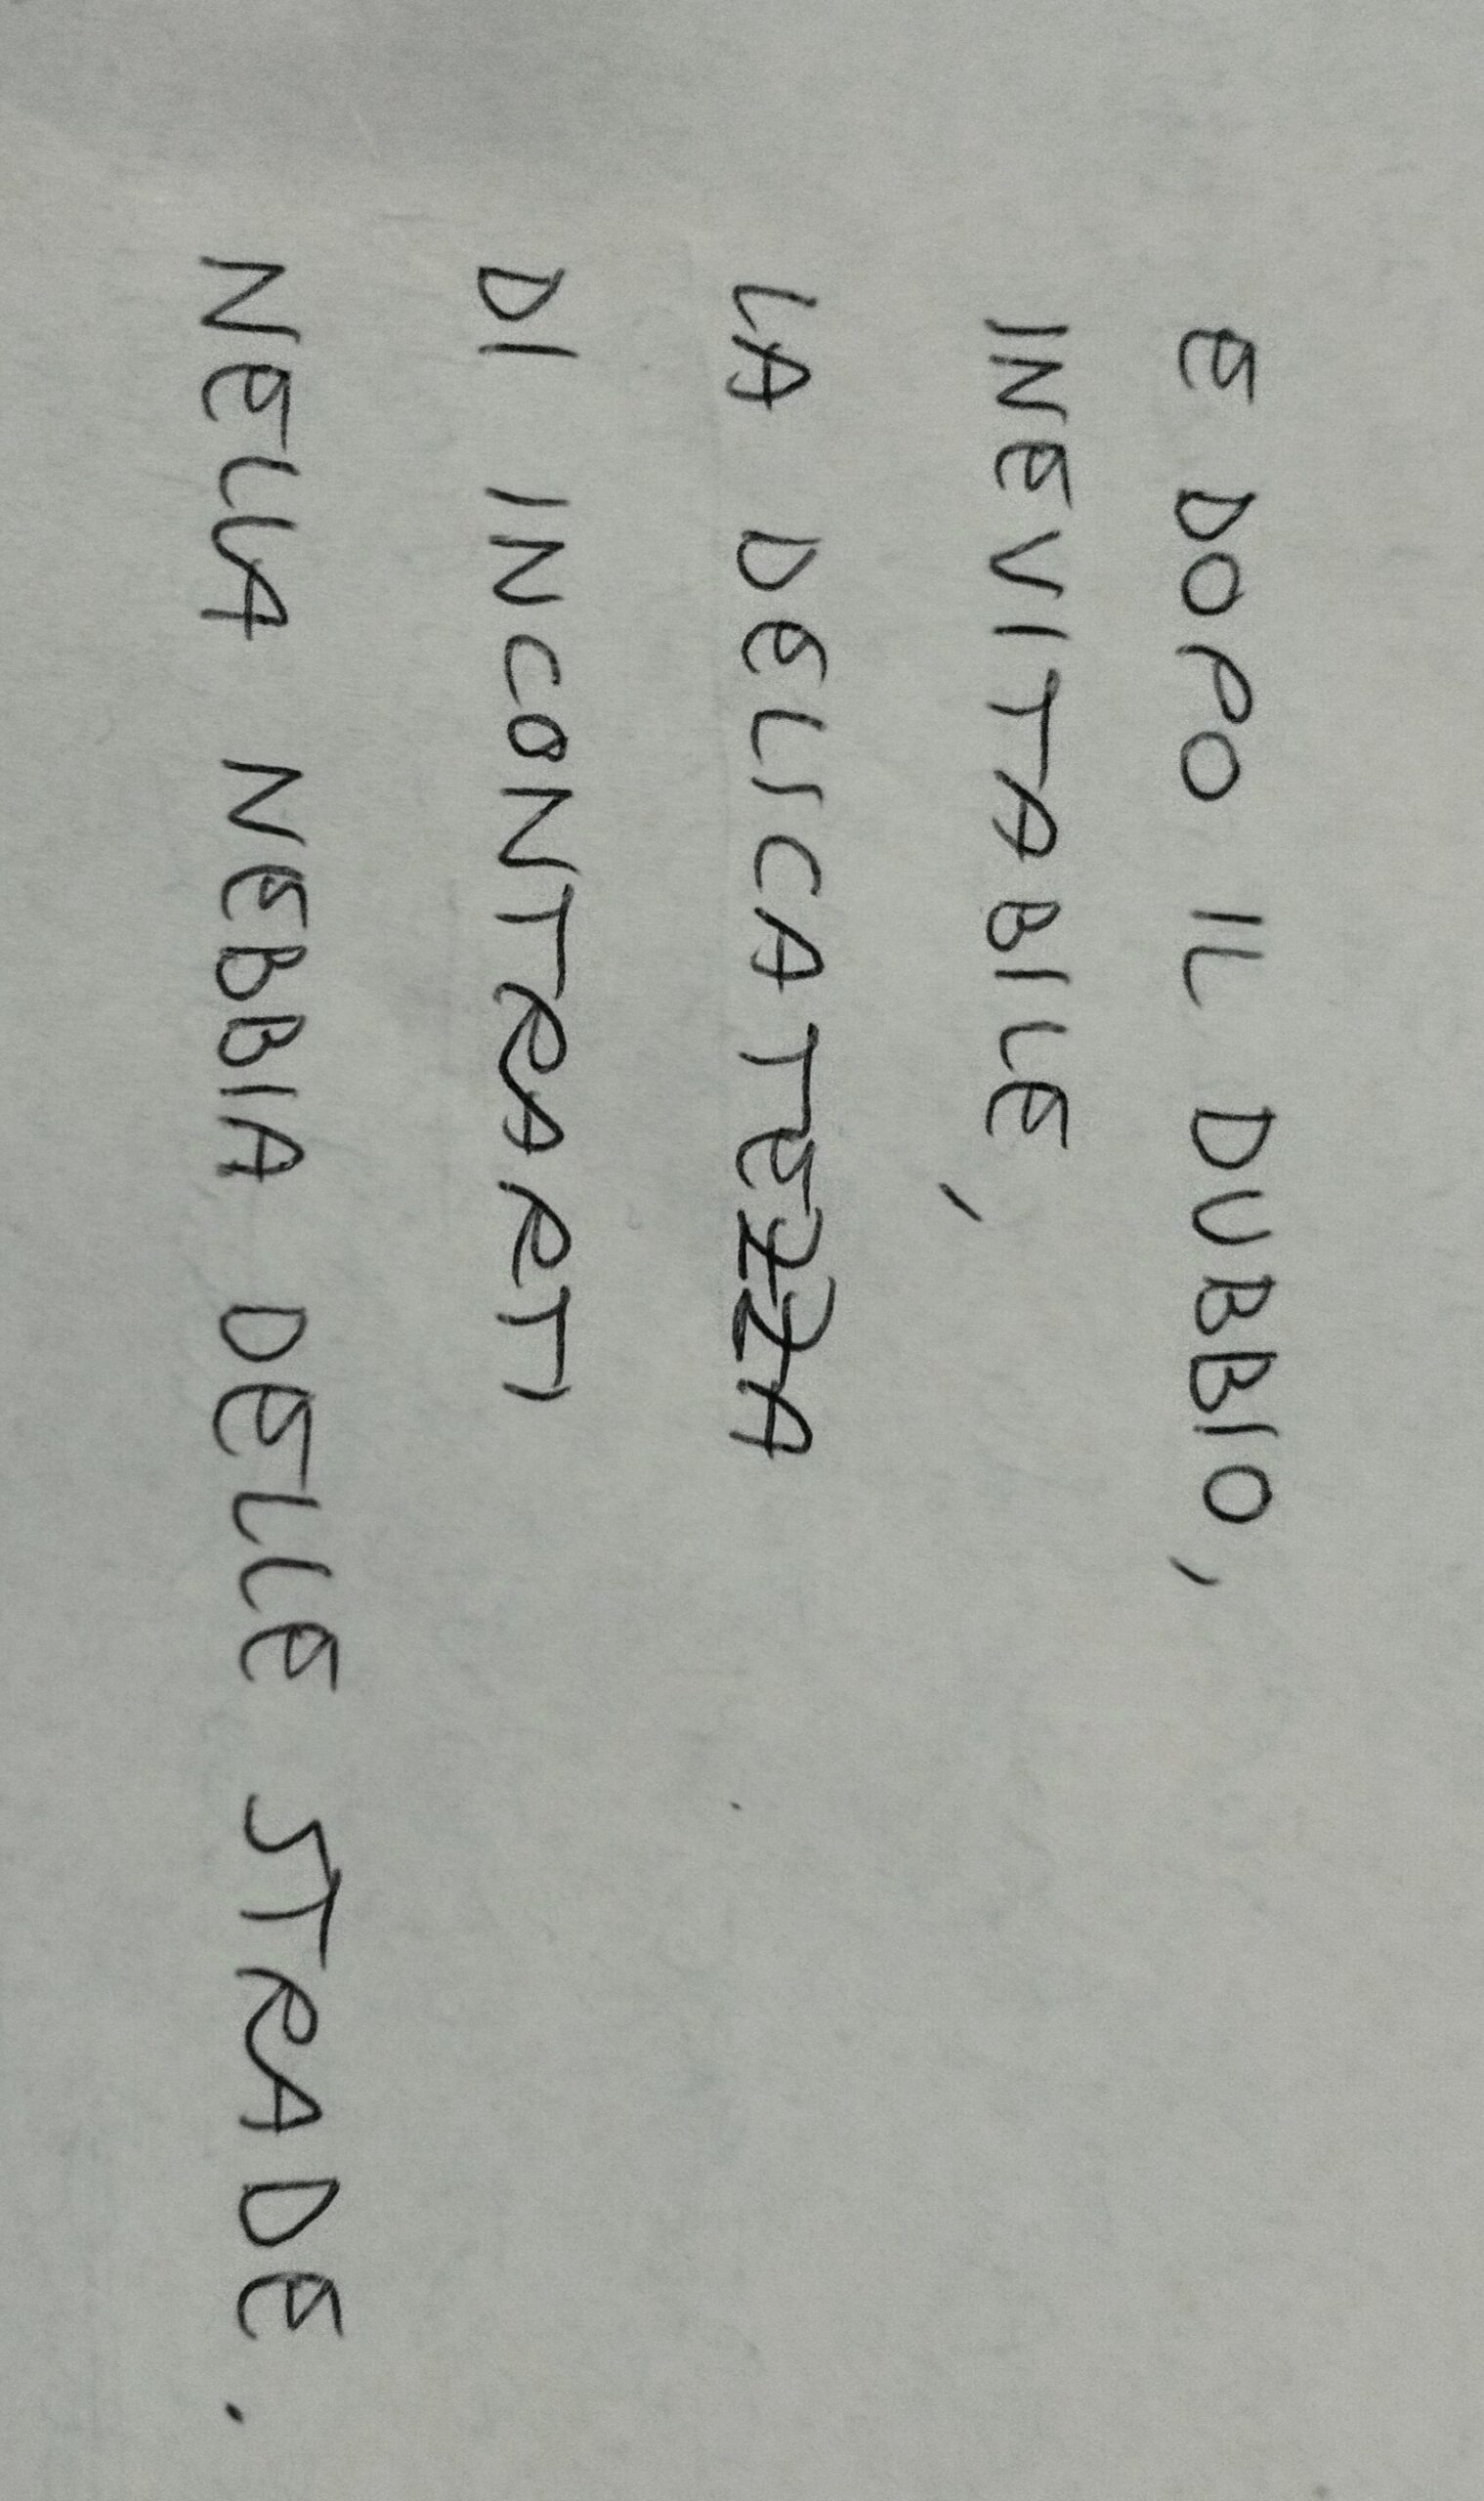 E DOPO IL DUBBIO,
INEVITABILE,
LA DELICATEZZA
DI INCONTRARTI
NELLA NEBBIA DELLE STRADE.